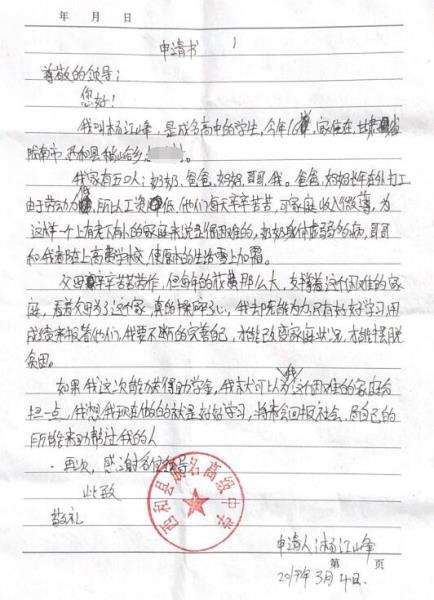 年 月 日
申请书
尊敬的领导：
您好！
我叫杨江峰，是成名高中的学生，今年16岁，家住在甘肃省
陇南市，西和县稍峪乡
我家有五口人：奶奶、爸爸、妈妈、哥哥、我。爸爸、妈妈长年在外打工
由于劳动力 ，所以工资 低，他们每天辛辛苦苦，可家庭收入微薄，为
这样一个上有老下有小的家庭来说是很困难的，奶奶身体虚弱多病，哥哥
和我都在上高费学校，使原本的生活雪上加霜。
父母辛辛苦苦劳作，但每年的花费那么大，支撑着这个困难的家
庭，看着父母为了这个家，真的操碎了心，我却无能为力只有好好学习，用
成绩来报答他们，我要不断的完善自己，才能改变家庭状况，才能摆脱
贫困。
如果我这次能力获得助学金，我就可以为我这个困难的家庭分
担一点，我想我现在做的就是好好学习，将来会回报社会，尽自己的
所能来助帮过我的人
再次，感谢各位领导
此致
敬礼
西和县成名高级中学
申请人：杨江峰
第 页
2019年3月4日